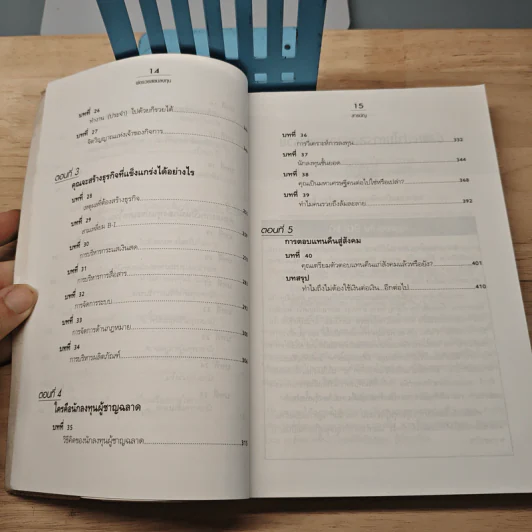 14
บทที่ 26
ทำงาน (ประจำ) ไปด้วยก็รวยได้
บทที่ 27
จิตวิญญาณแห่งเจ้าของกิจการ
ตอนที่ 3
คุณจะสร้างธุรกิจที่แข็งแกร่งได้อย่างไร
บทที่ 28
เหตุผลที่ต้องสร้างธุรกิจ
บทที่ 29
สามเหลี่ยม B-I
บทที่ 30
การบริหารกระแสเงินสด
บทที่ 31
การบริหารการสื่อสาร
บทที่ 32
การจัดการระบบ
บทที่ 33
การจัดการด้านกฎหมาย
บทที่ 34
การบริหารผลิตภัณฑ์
ตอนที่ 4
ใครคือนักลงทุนผู้ชาญฉลาด
บทที่ 35
วิธีคิดของนักลงทุนผู้ชาญฉลาด
15
สารบัญ
บทที่ 36
การวิเคราะห์การลงทุน 332
บทที่ 37
นักลงทุนชั้นยอด 344
บทที่ 38
คุณเป็นมหาเศรษฐีคนต่อไปใช่หรือเปล่า? 368
บทที่ 39
ทำไมคนรวยถึงล้มละลาย 392
ตอนที่ 5
การตอบแทนคืนสู่สังคม
บทที่ 40
คุณเตรียมตัวตอบแทนคืนแก่สังคมแล้วหรือยัง? 401
บทสรุป
ทำไมถึงไม่ต้องใช้เงินต่อเงิน...อีกต่อไป 410